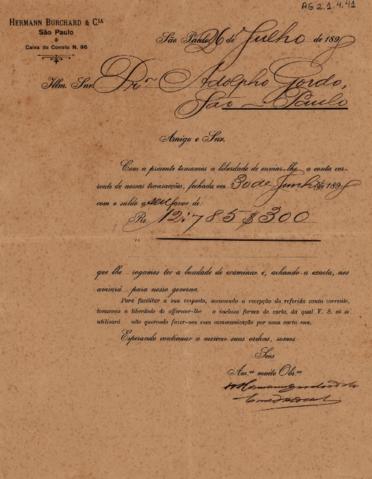 AG 2.1.4.41
HERMANN BURCHARD & Cia
São Paulo
Caixa do Correio N. 96
São Paulo, 26 de Julho de 189
Illm. Snr. Dr. Adolpho Gordo,
São Paulo
Amigo e Snr.
Com a presente tomamos a liberdade de enviar-lhe a conta cor-
rente de nossas transacções, fechada em 30 de Junho 189
com o saldo a seu favor de:
Rs 12:785$300
que lhe rogamos ter a bondade de examinar e, achando-a exacta, nos
avisará para nosso governo.
Para facilitar a sua resposta, accusando a recepção da referida conta corrente,
tomamos a liberdade de offerecer-lhe a inclusa forma de carta, da qual V. S. só se
utilisará não querendo fazer-nos essa communicação por uma carta sua.
Esperando continuar a merecer suas ordens, somos
Seus
Am.os muito Obr.os